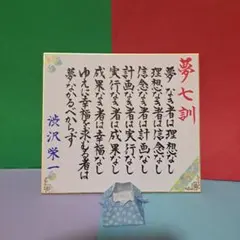 夢七訓
夢なき者は理想なし
理想なき者は信念なし
信念なき者は計画なし
計画なき者は実行なし
実行なき者は成果なし
成果なき者は幸福なし
ゆえに幸福を求むる者は
夢なかるべからず
渋沢栄一